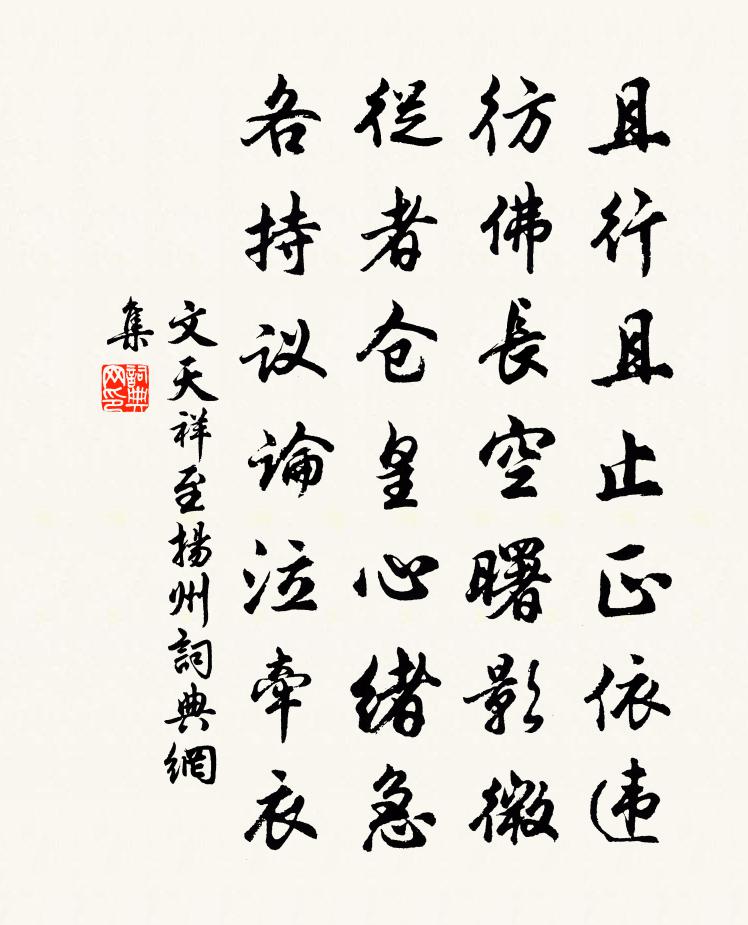 且行且止正依违
彷佛長空曙影微
從者仓皇心緒急
各持议論泣牽衣
文天祥至揚州詞典網
集
詞典
网印